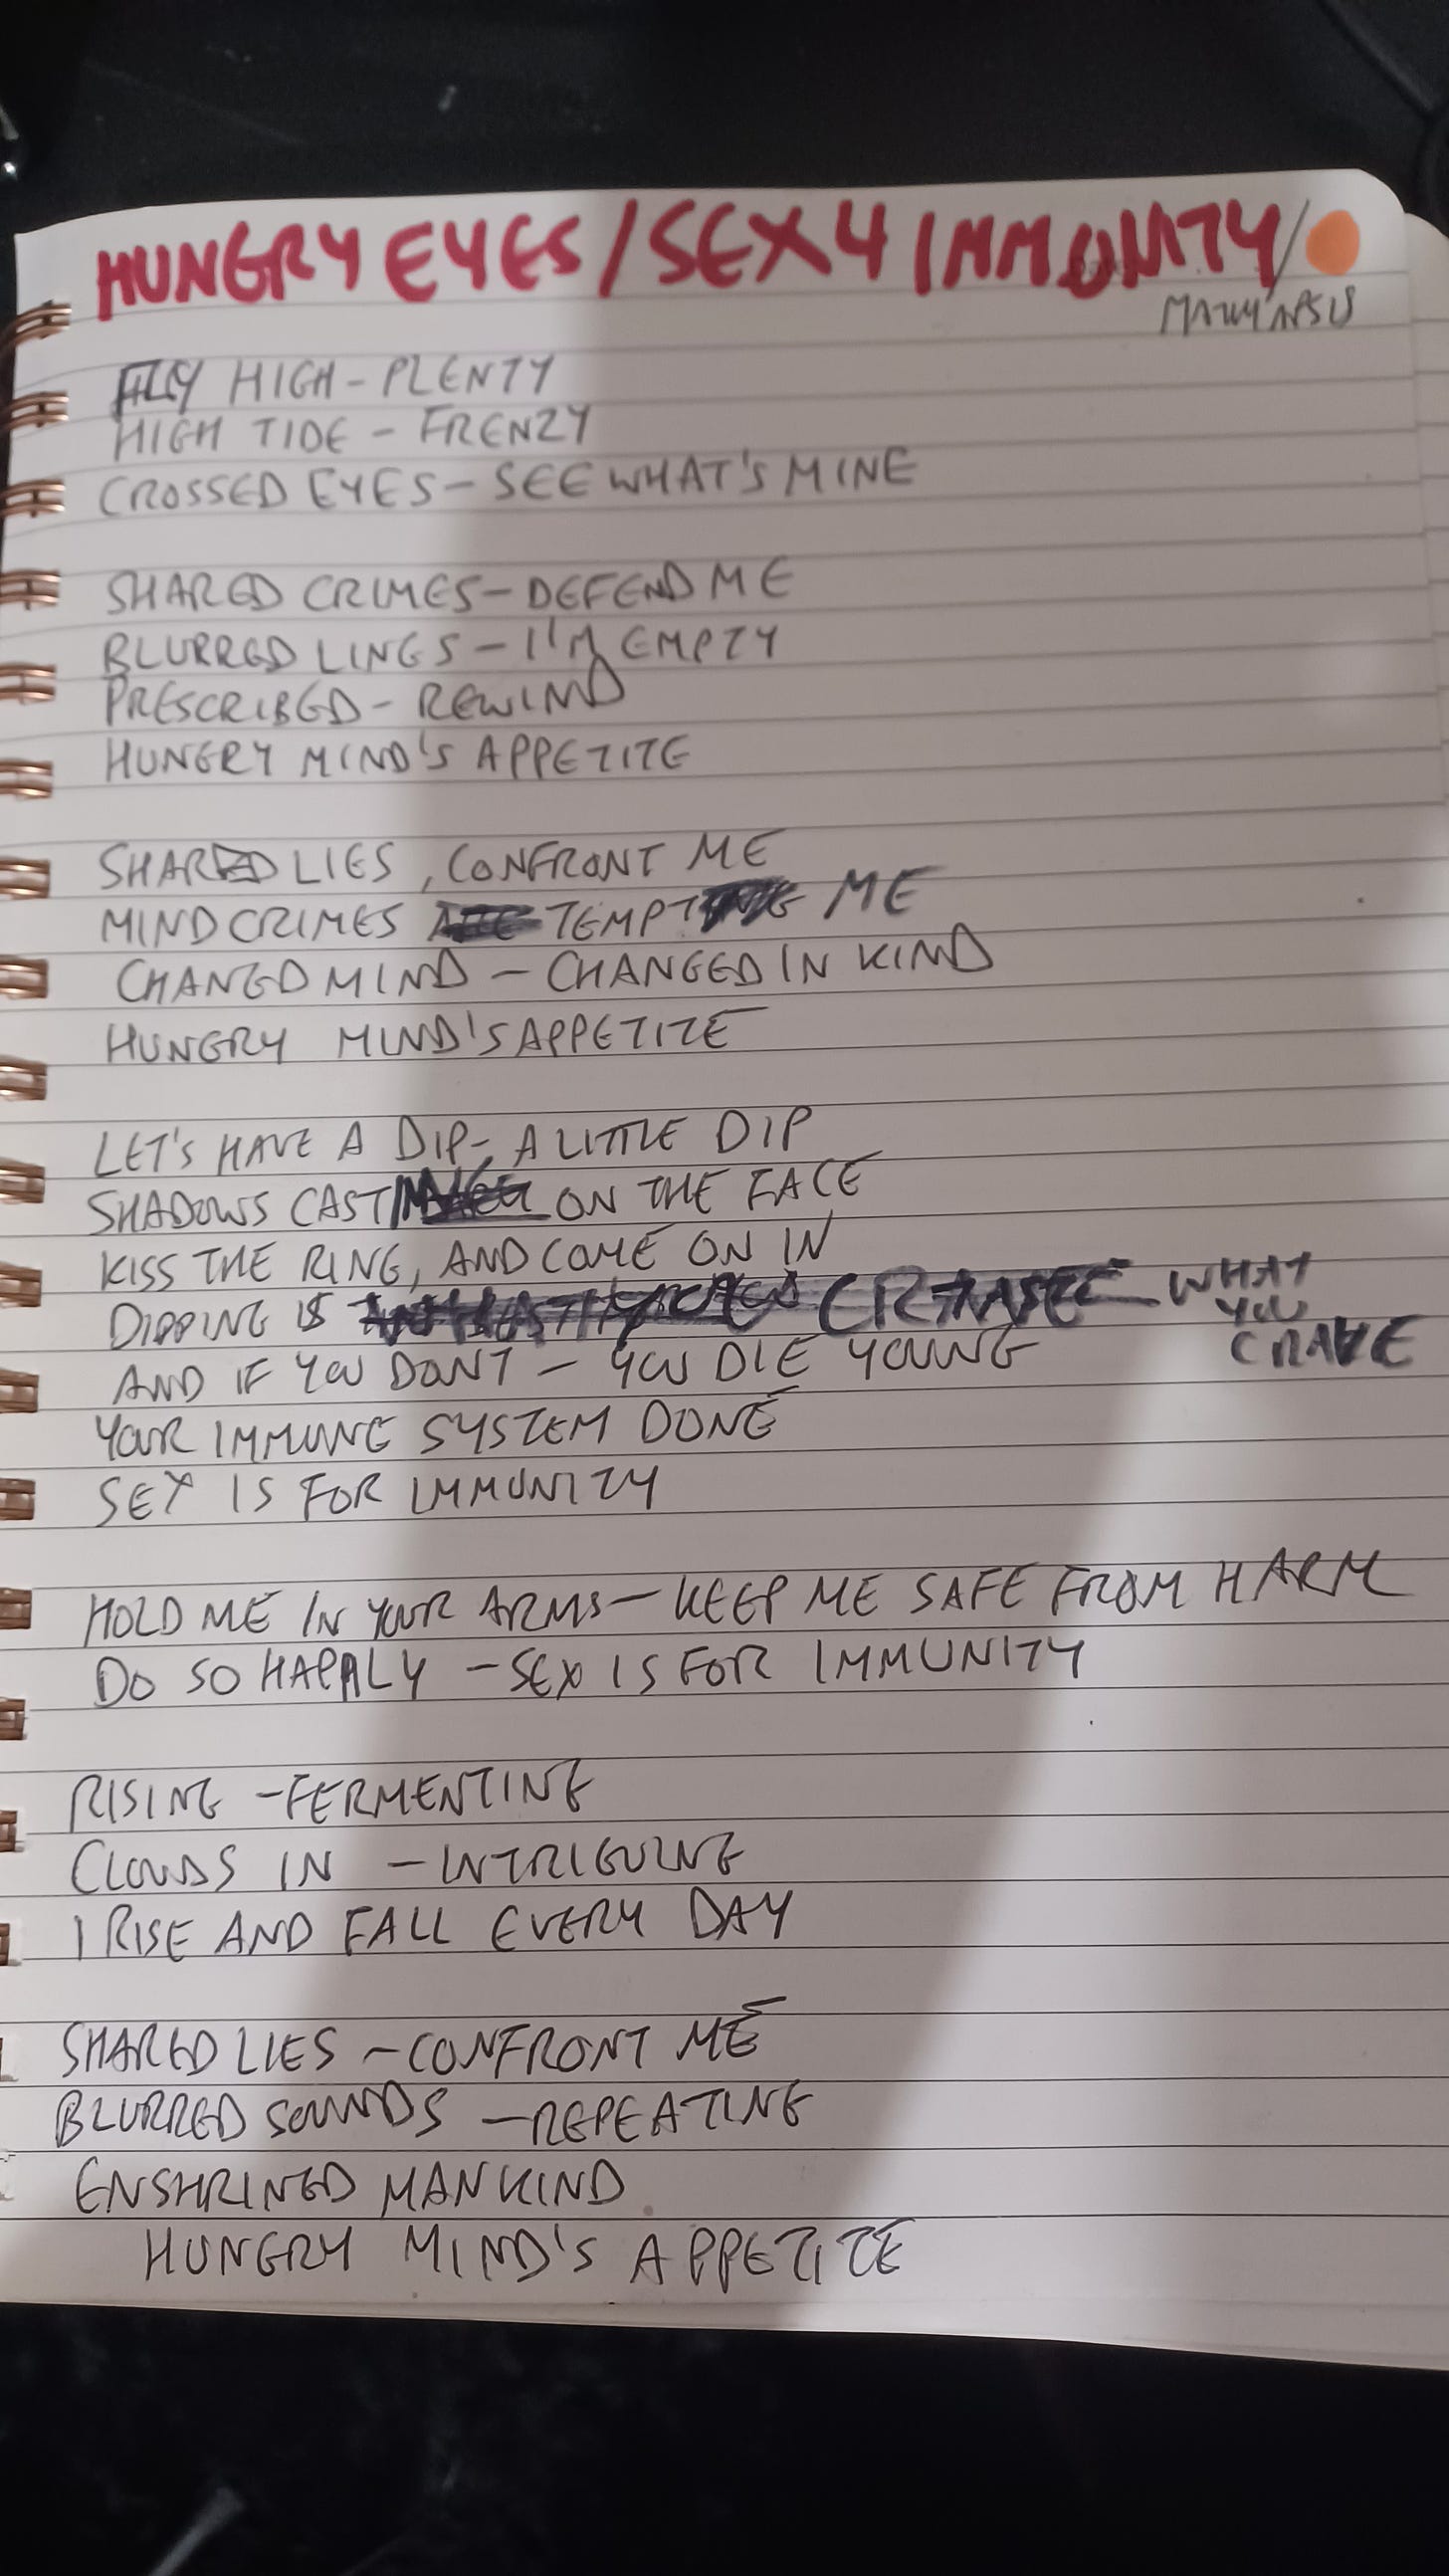 HUNGRY EYES/SEX 4 IMMUNITY/
FLY HIGH - PLENTY
HIGH TIDE - FRENZY
CROSSED EYES - SEE WHAT'S MINE
SHARED CRIMES - DEFEND ME
BLURRED LINES - I'M EMPTY
PRESCRIBED - REWIND
HUNGRY MIND'S APPETITE
SHARED LIES, CONFRONT ME
MIND CRIMES TEMPT ME
CHANGED MIND - CHANGED IN KIND
HUNGRY MIND'S APPETITE
LET'S HAVE A DIP - A LITTLE DIP
SHADOWS CAST ON THE FACE
KISS THE RING, AND COME ON IN
DIPPING IS WHAT YOU CRAVE
AND IF YOU DON'T - YOU DIE YOUNG
YOUR IMMUNE SYSTEM DONE
SEX IS FOR IMMUNITY
HOLD ME IN YOUR ARMS - KEEP ME SAFE FROM HARM
DO SO HAPPILY - SEX IS FOR IMMUNITY
RISING - FERMENTING
CLOUDS IN - INTRIGUING
I RISE AND FALL EVERY DAY
SHARED LIES - CONFRONT ME
BLURRED SOUNDS - REPEATING
ENSHRINED MANKIND
HUNGRY MIND'S APPETITE